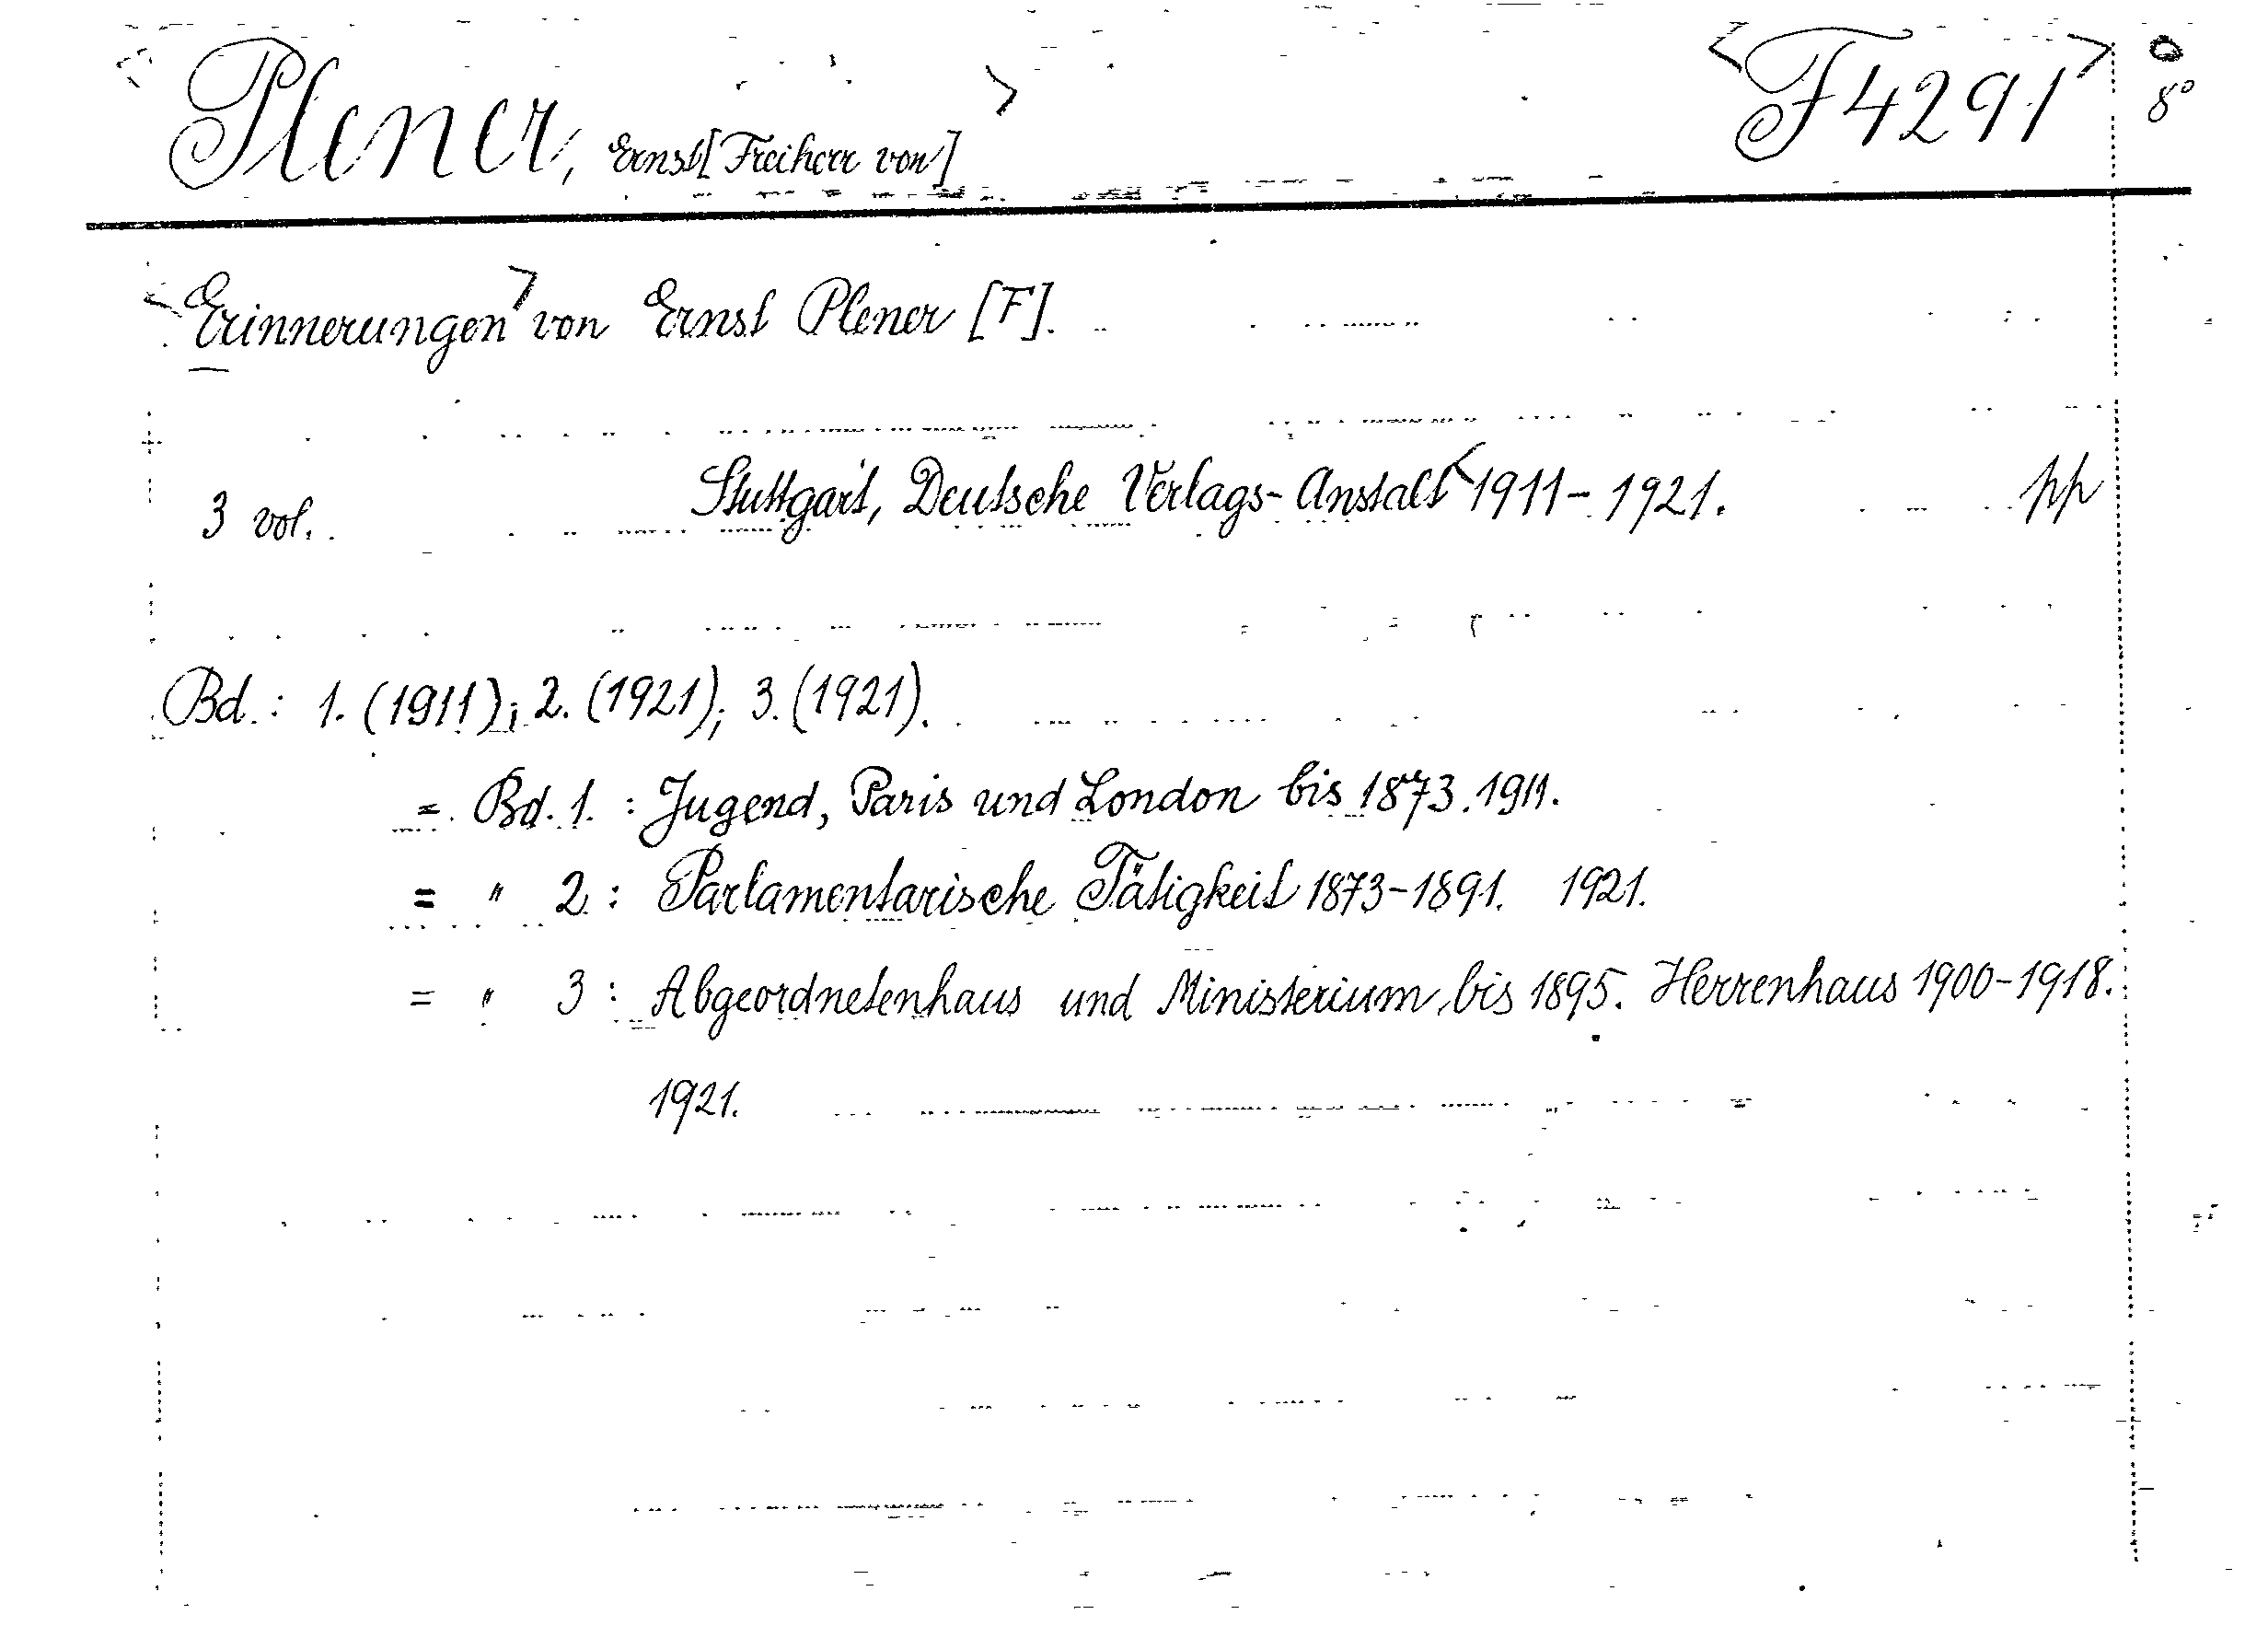 Plener, Ernst [Freiherr von] F4291 8°
Erinnerungen von Ernst Plener [F].
3 vol. Stuttgart, Deutsche Verlags-Anstalt 1911-1921. pp
Bd.: 1. (1911); 2. (1921); 3. (1921).
= Bd. 1. : Jugend, Paris und London bis 1873. 1911.
= " 2 : Parlamentarische Tätigkeit 1873-1891. 1921.
= " 3 : Abgeordnetenhaus und Ministerium bis 1895. Herrenhaus 1900-1918.
1921.